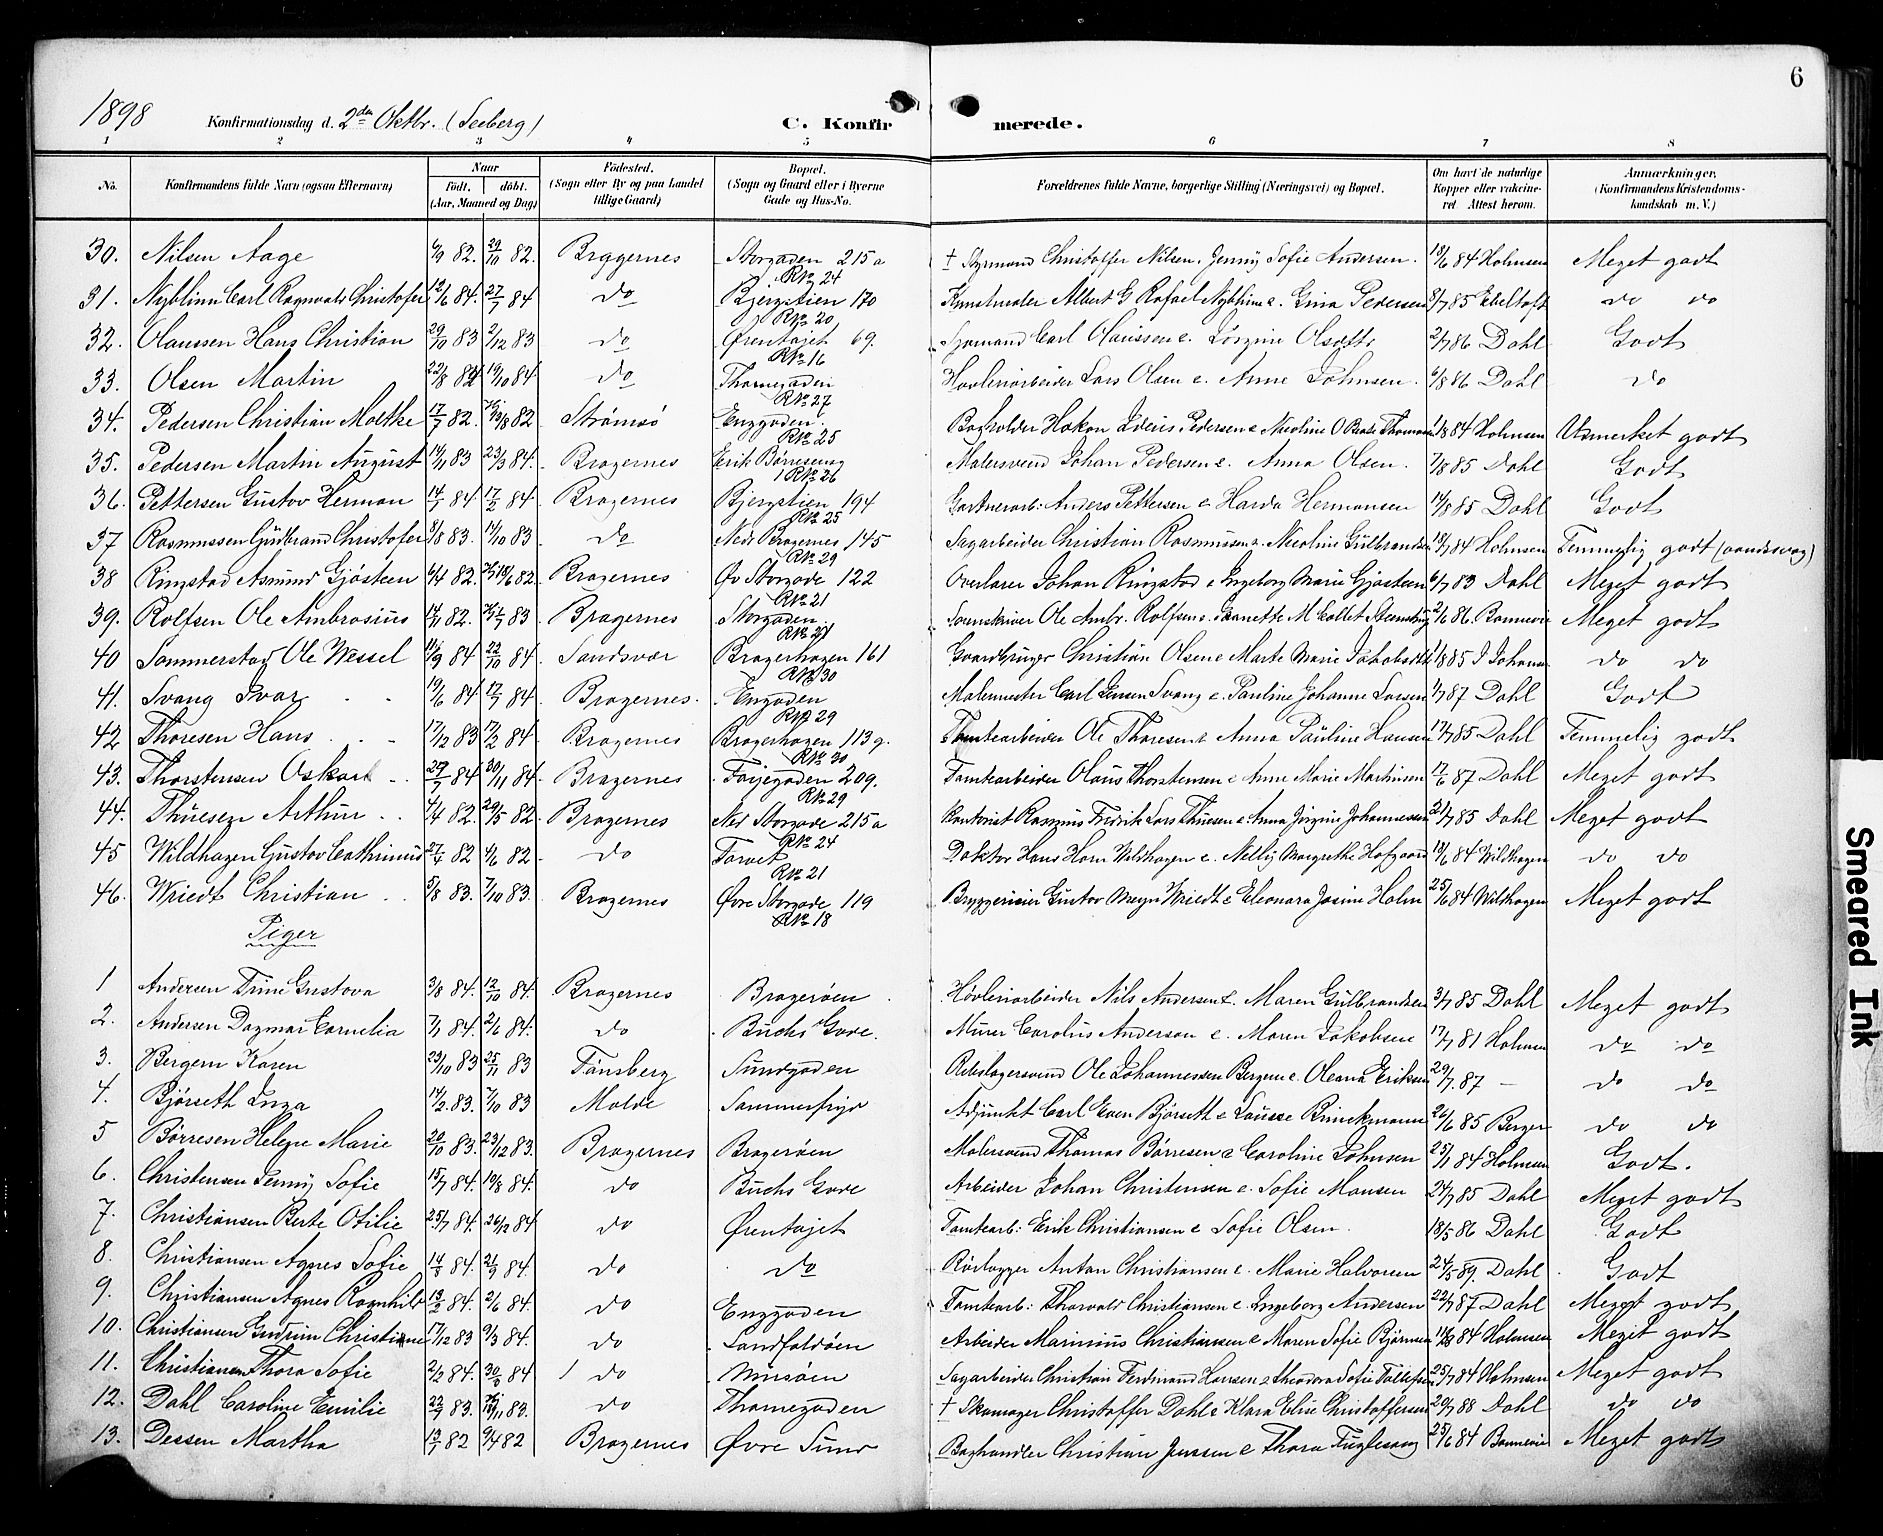 6
1898 Konfirmationsdag d. 2den Oktbr. (Seeberg) C. Konfirmerede.
1 2 3 4 5 6 7 8
No. Konfirmandens fulde Navn (ogsaa Efternavn) Naar født. døbt. (Aar, Maaned og Dag) Födested. (Sogn eller By og paa Landet tillige Gaard) Bopæl. (Sogn og Gaard eller i Byerne Gade og Hus-No. Forældrenes fulde Navne, borgerlige Stilling (Næringsvei) og Bopæl. Om havt de naturlige Kopper eller vakcineret. Attest herom. Anmærkninger. (Konfirmandens Kristendomskundskab m. V.)
30. Nilsen Aage 6/9 82. 29/10 82. Braggernes Storgaden 215a R№ 24 † Styrmand Christoffer Nilsen, Jenny Sofie Andersen. 18/6 84 Holmsen Meget godt
31. Nyblinn Carl Ragnvald Christofer 12/6 84. 27/7 84 do Bjergstien 170 R№ 20 Albert G Rafael Gina Pedersen 8/7 85 Ebeltoft do do
32. Olaussen Hans Christian 29/10 83 2/12 83 do Ørentøjet 69. R№ 16 Sjømand Carl Olaussen e. Olsdtr 2/7 86 Dahl Godt
33. Olsen Martin 22/8 84 19/10 84 do Thornegaden R№ 27 Høvleriarbeider Lars Olsen e. Anne Johnsen. 6/8 86 Dahl do
34. Pedersen Christian Moltke 17/7 82. 82 Strømsø Enggaden. R№ 25 Bogholder Hakon Pedersen e Nicoline O 1/8 84 Holmsen Udmerket godt
35. Pedersen Martin August 14/11 83 23/3 84. Bragernes Erik Børresensg R№ 26 Malersvend Johan Pedersen e. Anna Olsen. 7/8 85 Dahl Godt
36. Pettersen Gustav Herman 14/1 84. 17/2 84. Bragernes Bjergstien 194 R№ 25 Gartnerarb: Anders Pettersen e Harda Hermansen 14/8 85 Dahl Godt
37 Rasmussen Gudbrand Christofer 8/8 83. 14/10 83. do Nedr Bragernes 145 R№ 29 Sagarbeider Christian Rasmussen e. Nicoline Gulbrandsen 18/7 84 Holmsen Temmelig godt (aandssvag)
38 Ringstad Asmund Gjøsteen 6/4 82. 18/6 82. Bragernes Øv Storgade 122 R№ 21 Overlærer Johan Ringstad e Ingeborg Marie Gjøsteen 6/7 83 Dahl Meget godt
39. Rolfsen Ole Ambrosius 14/11 82. 83 Bragernes Storgaden. R№ 21 Sorenskriver Ole Ambr. Rolfsen e. Jeanette M Collet 2/6 86. Bonnevie Meget godt
40 Sommerstad Ole Wessel 11/9 84 22/10 84. Sandsvær Bragerhagen 161 R№ 30 Gaardbruger Christian Olsen e Marte Marie Jakobsdtr 1/8 85 J Johans do do
41. Svang Ivar 19/6 84. 17/7 84. Bragernes. Engaden R№ 29 Malemester Carl Jensen Svang e. Pauline Johanne Larsen 1/7 87 Dahl Godt
42 Thoresen Hans 17/12 83 17/2 84. Bragernes Bragerhagen 113g. R№ 30 Tomtearbeider Ole Thoresen e Anna Pauline Hansen 17/7 85 Dahl Temmelig godt
43. Thorstensen Oskar 27/7 84 30/11 84. Bragernes Føjegaden 209. R№ 29 Tomtearbeider Olaus Thorstensen e Anne Marie Martinsen 17/6 87 Dahl Meget godt
44. Thuesen Arthur 4/4 82. 29/5 82. Bragernes Ned Storgade 215a R№ 24 Kontorist Rasmus Fredrik Lars Thuesen e Anna Jørgine Johannessen 21/7 85 Dahl Meget godt
45 Wildhagen Gustav Cathrinus 27/4 82 4/6 82 do Torvet R№ 21 Doktor Hans Horn Wildhagen e. Nelly Margrethe Hofgaard 18/6 84 Wildhagen do do
46. Wriedt Christian 5/8 83. 7/10 83. Bragernes Øvre Storgade 119 R№ 18 Bryggerieier Gustav Meyn Wriedt e Eleonora Josine Holm 25/6 84 Wildhagen Meget godt
Piger
1 Andersen Trine Gustava 3/8 84. 12/10 84. Bragernes Bragerøen Høvleriarbeider Nils Andersen e. Maren Gulbrandsen 3/7 85 Dahl Meget godt
2. Andersen Dagmar Cornelia 7/1 84. 2/6 84. do Buchs Gade. Murer Carolus Andersen e. Maren Jakobsen 17/7 81 Holmsen do do
3. Bergem Karen 23/10 83 25/11 83 Tønsberg Sundgaden Rebslagersvend Ole Johannessen Bergem e. Oleana Eriksen 29/7. 87 – do do
4. Bjørseth Inga 14/2 83. 7/10 83 Molde Sommerfryd Adjunkt Carl Even Bjørseth e Lousse Brinckmann 26/6 85 Berger do do
5 Børresen Helene Marie 20/10 83. 23/12 83. Bragernes Bragerøen Malersvend Thomas Børresen e Caroline Johnsen 25/7 84 Holmsen Godt.
6. Christensen Jenny Sofie 15/7 84. 19/8 84. do Buchs Gade Arbeider Johan Christensen e. Sofie Monsen 24/7 85 Dahl Meget godt
7. Christiansen Berte Otilie 25/7 84. 26/12 84 do Ørentøjet Tomtearb: Erik Christiansen e Sofie Olsen. 18/5 86 Dahl Godt
8. Christiansen Agnes Sofie 14/8 84. 21/9 84. do do Rørlægger Anton Christiansen e. Marie Halvorsen 24/5 89. Dahl Godt
9. Christiansen Agnes Ragnhild 13/2 84. 2/6 84. do Enggaden Tomtearb: Thorvald Christiansen e. Ingeborg Andersen 22/7 87 Dahl Meget godt
10. Christiansen Gudrun Christiane 17/12 83 9/3 84. do Landfaldøen Arbeider Marinius Christiansen e Maren Sofie Bjørnsen 11/8 84 Holmsen Meget godt
11. Christiansen Thora Sofie 2/2 84. 30/3 84 do Musøen Sagarbeider Christian Ferdinand Hansen e Theodora Sofie 25/7 84 Holmsen Meget godt
12. Dahl Caroline Emilie 22/7 83. 11 83. do Thornegaden † Skomager Christoffer Dahl e Klara Elise Christoffersen 29/7 88 Dahl do do
13. Dessen Martha 13/1 82 9/4 82 Bragernes Øvre Sund Boghandler Christian Jenssen e Thora Fuglesang 25/6 84 Bonnevie Meget godt
Smeared Ink